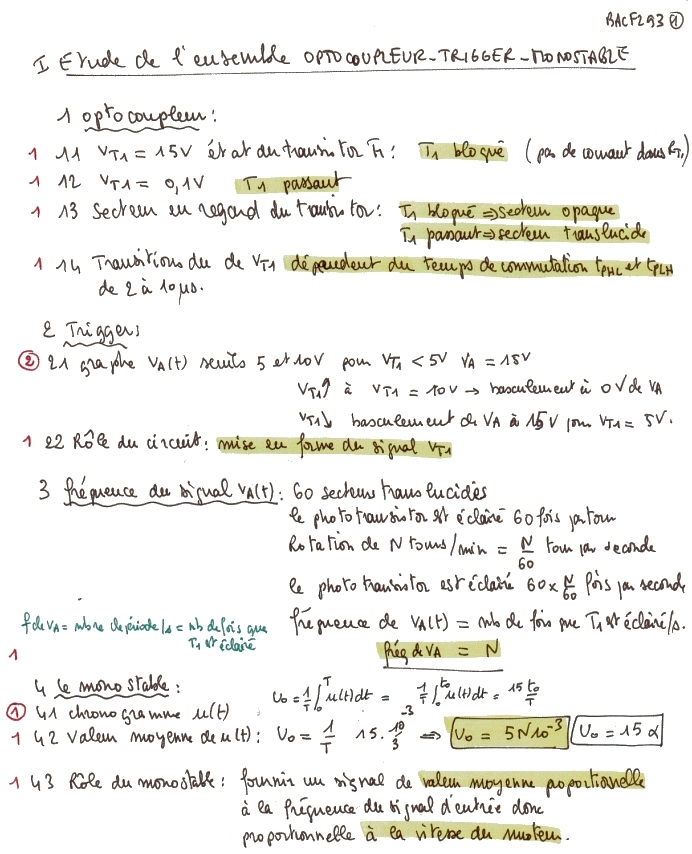 BACF293 ①
I Etude de l'ensemble OPTOCOUPLEUR-TRIGGER-MONOSTABLE
1 optocoupleur :
1 11 VT1 = 15V état du transistor T1 : T1 bloqué (pas de courant dans RT1)
1 12 VT1 = 0,1V T1 passant
1 13 Secteur en regard du transistor : T1 bloqué ⇒ secteur opaque
T1 passant ⇒ secteur translucide
1 14 Transitions du de VT1 dépendent du temps de commutation tPHL et tPLH
de 2 à 10 µs.
2 Trigger :
② 21 graphe VA(t) seuils 5 et 10V pour VT1 < 5V VA = 15V
VT1↗ à VT1 = 10V → basculement à 0V de VA
VT1↘ basculement de VA à 15V pour VT1 = 5V.
1 22 Rôle du circuit : mise en forme du signal VT1
3 fréquence du signal VA(t) : 60 secteurs translucides
le phototransistor est éclairé 60 fois par tour
Rotation de N tours/min = N/60 tour par seconde
le phototransistor est éclairé 60 x N/60 fois par seconde
f de VA = nbre de période/s = nb de fois que
T1 est éclairé
fréquence de VA(t) = nb de fois que T1 est éclairé/s.
1 fréq de VA = N
4 le monostable :
U0 = 1/T ∫0^T u(t)dt = 1/T ∫0^t0 u(t)dt = 15 t0/T
① 41 chronogramme u(t)
1 42 Valeur moyenne de u(t) : U0 = 1/T 15. 10^-3/3 ⇒ U0 = 5N10^-3 U0 = 15 α
1 43 Rôle du monostable : fournir un signal de valeur moyenne proportionnelle
à la fréquence du signal d'entrée donc
proportionnelle à la vitesse du moteur.